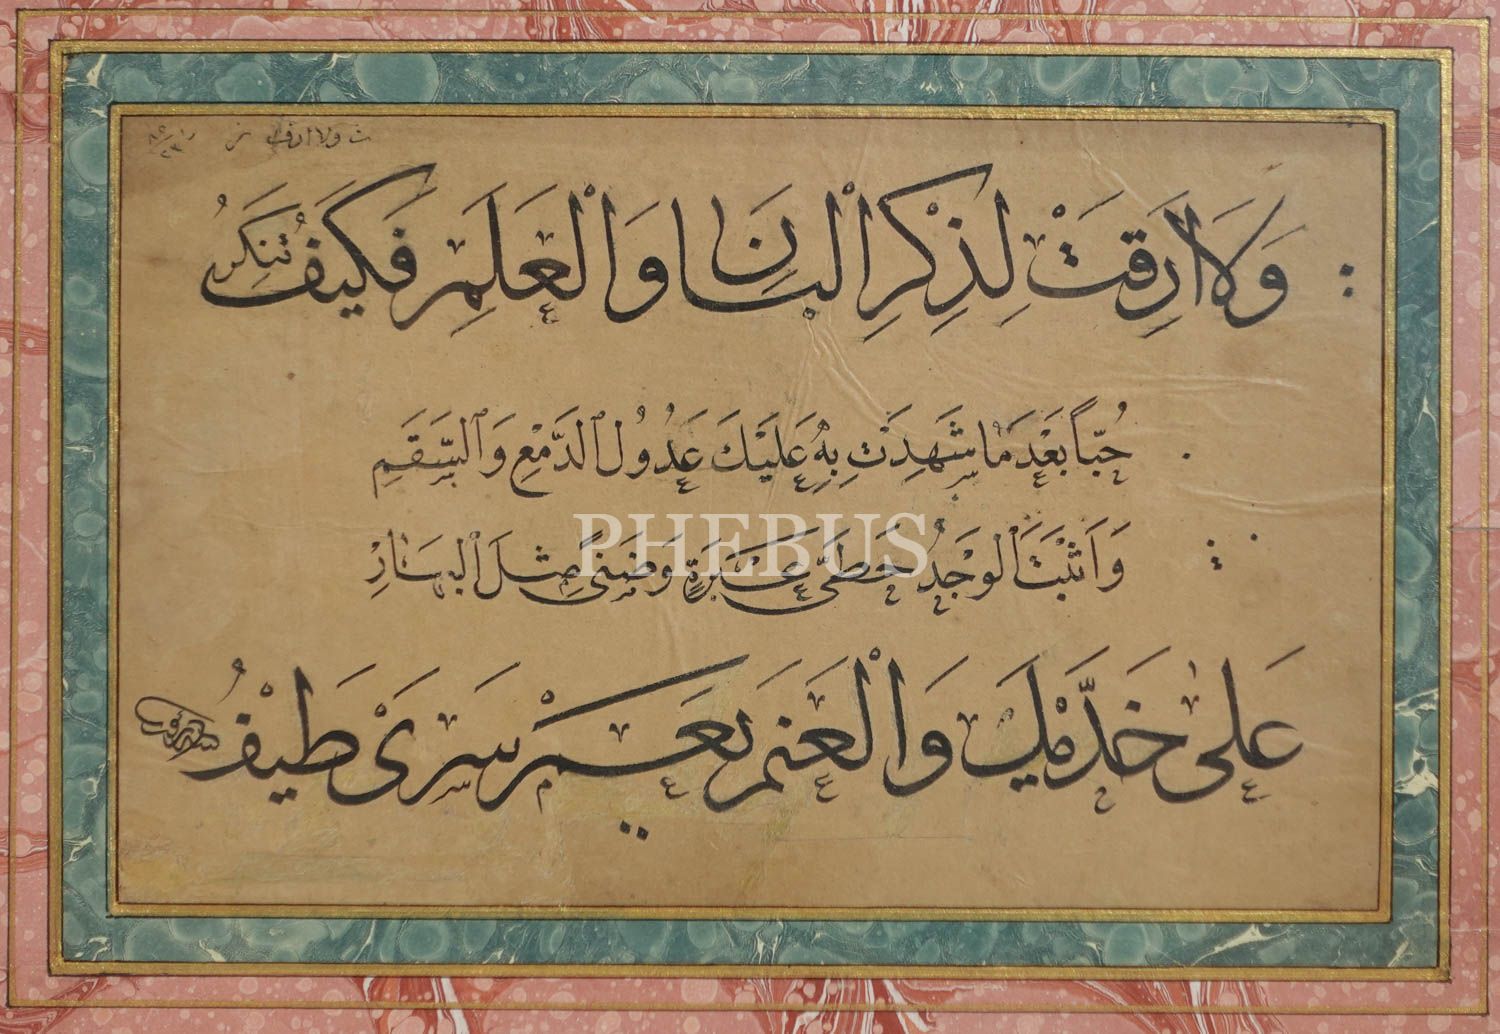 ولا ارقت
وَلَا اَرِقْتَ لِذِكْرِ الْبَانِ وَالْعَلَمِ فَكَيْفَ تُنْكِرُ
حُبًّا بَعْدَ مَا شَهِدَتْ بِهِ عَلَيْكَ عُدُولُ الدَّمْعِ وَالسَّقَمِ
PHEBUS
وَاَثْبَتَ الْوَجْدُ خَطَّىْ عَبْرَةٍ وَضَنًى مِثْلَ الْبَهَارِ
عَلٰى خَدَّيْكَ وَالْعَنَمِ نَعَمْ سَرٰى طَيْفُ